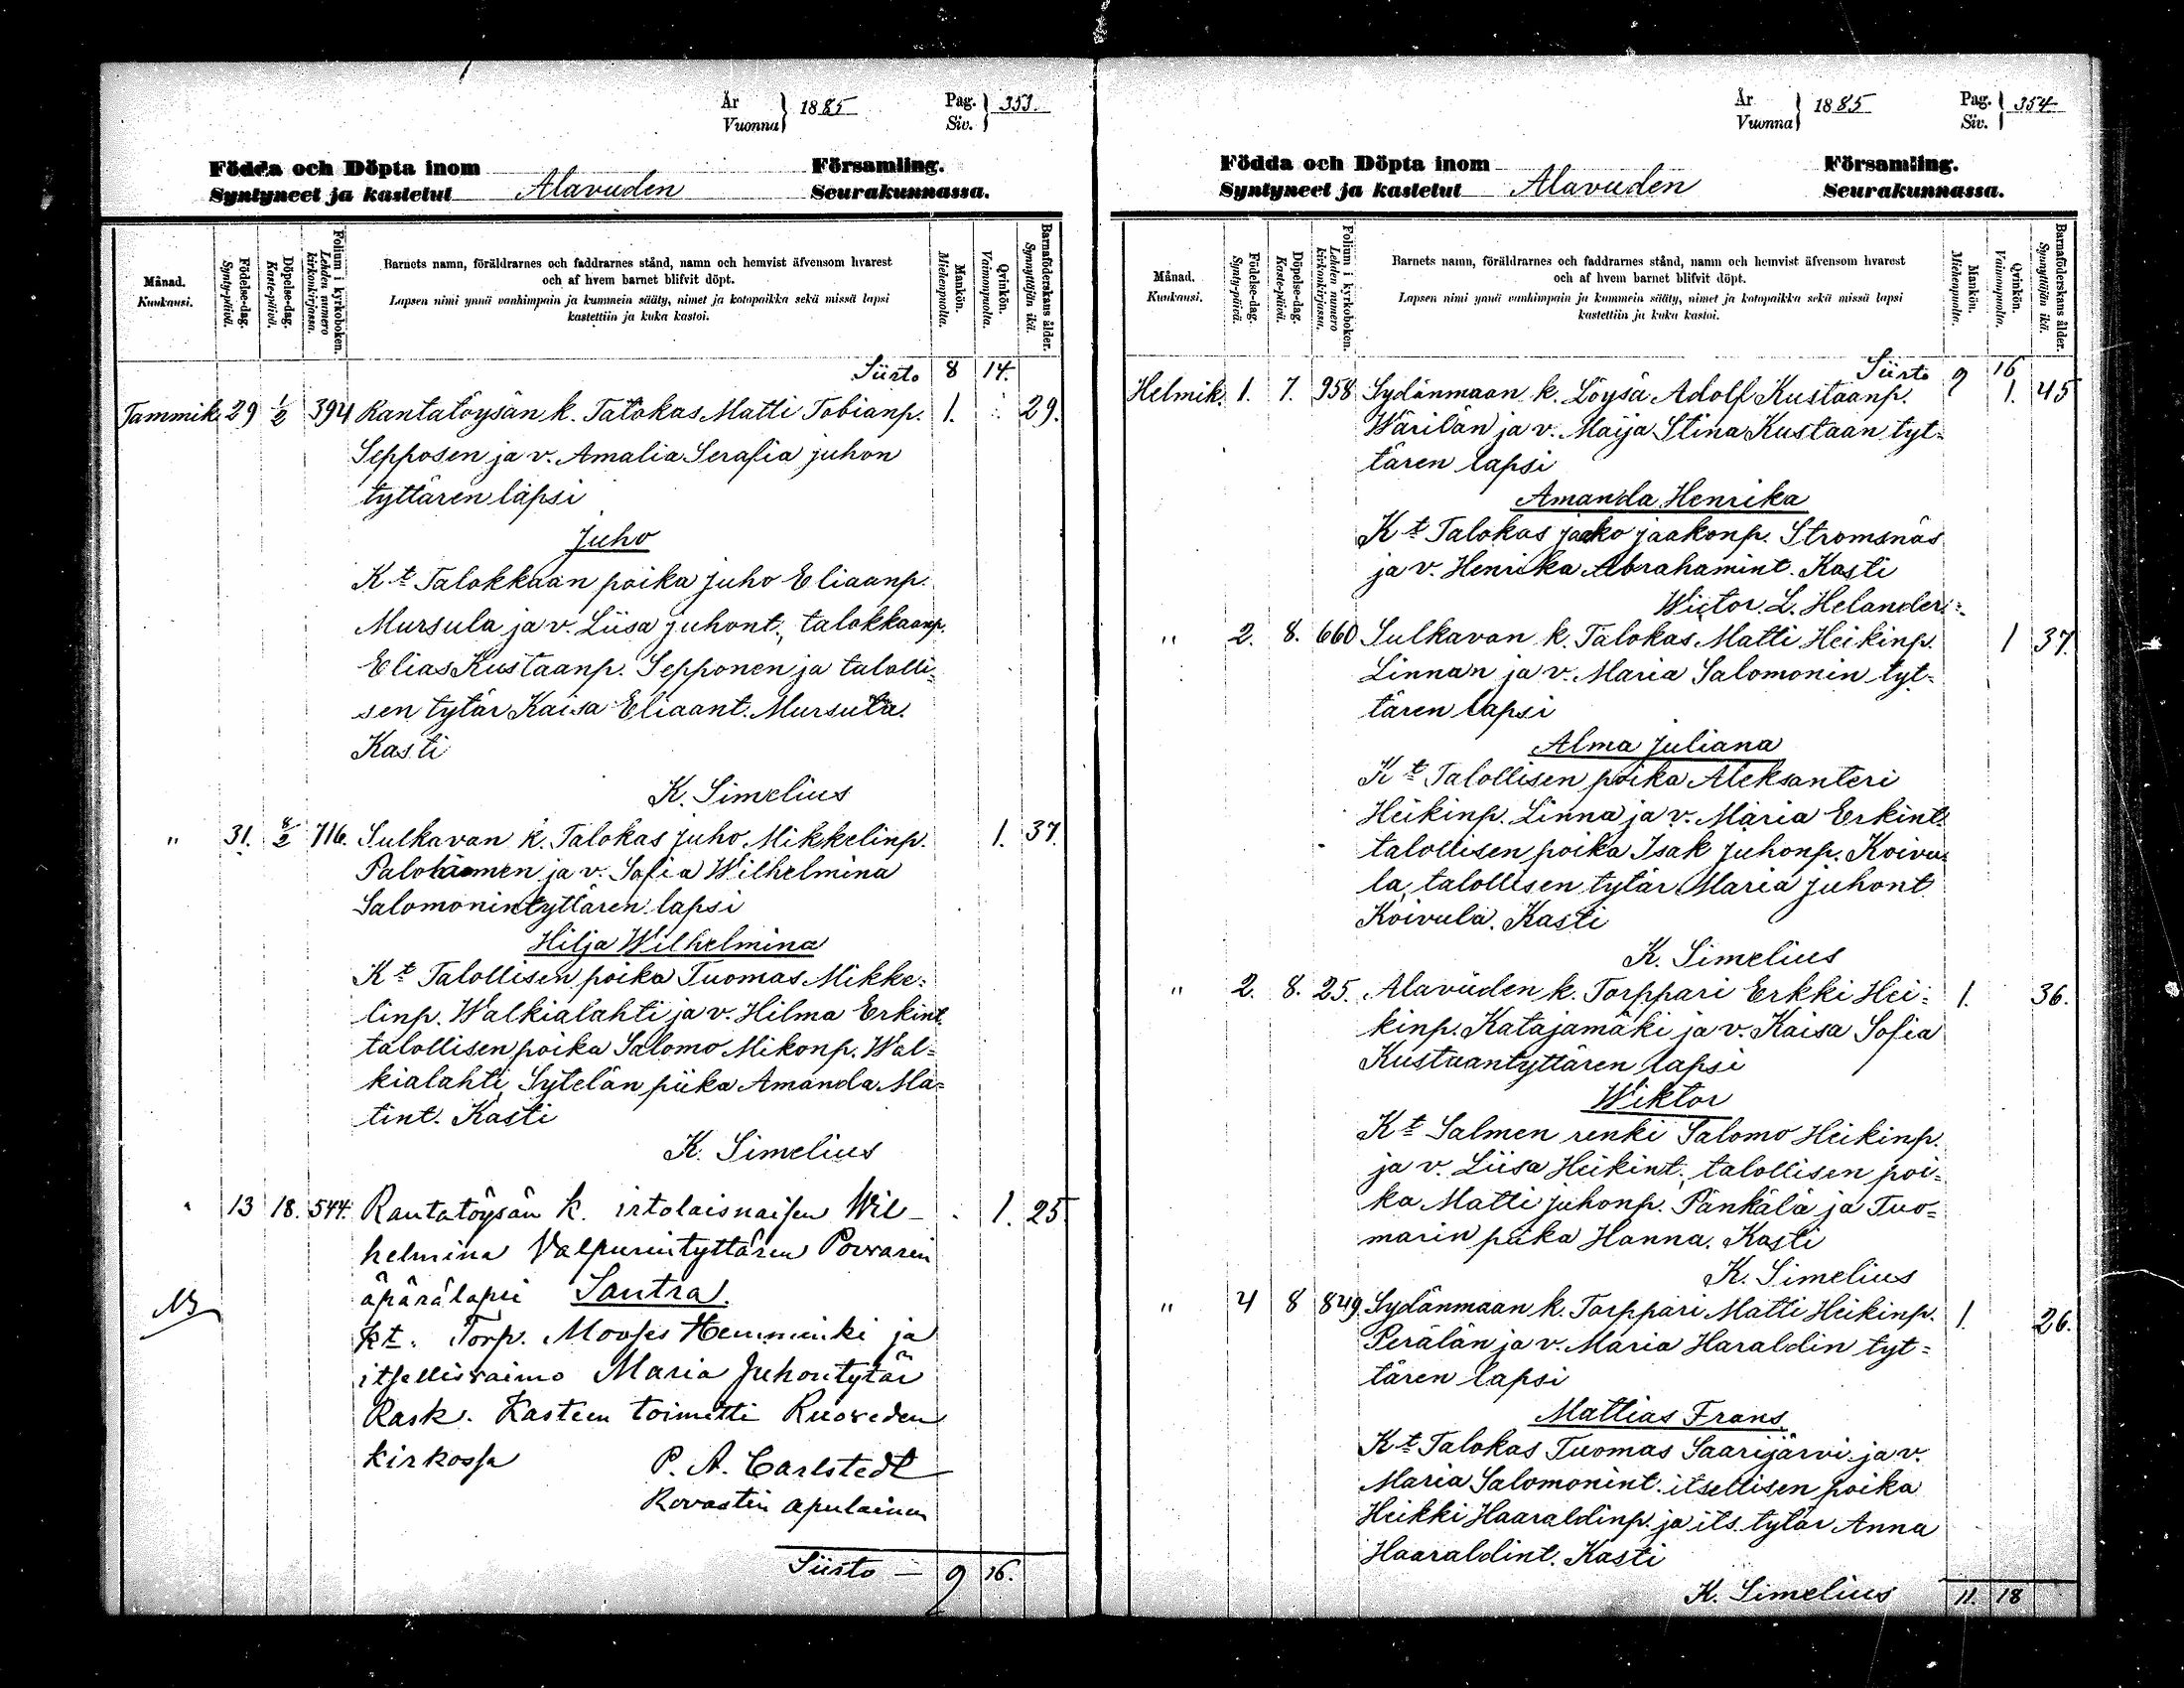 År
Vuonna } 1885
Pag.
Siv. } 353.
Födda och Döpta inom Församling.
Syntyneet ja kastetut Alavuden Seurakunnassa.
Månad.
Kuukausi.
Födelse-dag.
Synty-päivä.
Döpelse-dag.
Kaste-päivä.
Folium i kyrkoboken.
Lehden numero
kirkonkirjassa.
Barnets namn, föräldrarnes och faddrarnes stånd, namn och hemvist äfvensom hvarest
och af hvem barnet blifvit döpt.
Lapsen nimi ynnä vanhimpain ja kummein sääty, nimet ja kotopaikka sekä missä lapsi
kastettiin ja kuka kastoi.
Mankön.
Miehenpuolta.
Qvinkön.
Vaimonpuolta.
Barnaföderskans ålder.
Synnyttäjän ikä.
Siirto 8 14.
Tammik. 29 1/2 394 Rantatöysän k. Talokas Matti Tobianp. 1. 29.
Sepposen ja v. Amalia Serafia juhon
tyttären lapsi
Juho
Kt Talokkaan poika Juho Eliaanp.
Mursula ja v. Liisa juhont., talokkaanp.
Elias Kustaanp. Sepponen ja talolli-
sen tytär Kaisa Eliaant. Mursula.
Kasti
K. Simelius
" 31. 8/2 716. Sulkavan k. Talokas Juho Mikkelinp. 1. 37.
ja v. Sofia Wilhelmina
Salomonintyttären lapsi
Hilja Wilhelmina
Kt Talollisen poika Tuomas Mikke-
linp. Walkialahti ja v. Hilma Erkint.
talollisen poika Salomo Mikonp. Wal-
kialahti, Sytelän piika Amanda Ma-
tint. Kasti
K. Simelius
" 13 18. 544. Rantatöysän k. irtolaisnaisen Wil- 1. 25.
helmina Valpurintyttären
äpärälapsi Santra.
NB
kt. Torp. Mooses Hemminki ja
itsellisvaimo Maria Juhontytär
Rask. Kasteen toimitti Ruoveden
kirkossa P. A. Carlstedt
Rovastin apulainen
Siirto - 9 16.
År
Vuonna } 1885
Pag.
Siv. } 354
Födda och Döpta inom Församling.
Syntyneet ja kastetut Alavuden Seurakunnassa.
Månad.
Kuukausi.
Födelse-dag.
Synty-päivä.
Döpelse-dag.
Kaste-päivä.
Folium i kyrkoboken.
Lehden numero
kirkonkirjassa.
Barnets namn, föräldrarnes och faddrarnes stånd, namn och hemvist äfvensom hvarest
och af hvem barnet blifvit döpt.
Lapsen nimi ynnä vanhimpain ja kummein sääty, nimet ja kotopaikka sekä missä lapsi
kastettiin ja kuka kastoi.
Mankön.
Miehenpuolta.
Qvinkön.
Vaimonpuolta.
Barnaföderskans ålder.
Synnyttäjän ikä.
Siirto 9 16
Helmik. 1. 7. 958 Sydänmaan k. Löysä Adolf Kustaanp. 1. 45
Wärilän ja v. Maija Stina Kustaan tyt-
tären lapsi
Amanda Henrika
Kt Talokas jaako jaakonp. Stromsnäs
ja v. Henrika Abrahamint. Kasti
Wictor L. Helander.
" 2. 8. 660 Sulkavan k. Talokas Matti Heikinp. 1 37.
Linnan ja v. Maria Salomonin tyt-
tären lapsi
Alma Juliana
Kt Talollisen poika Aleksanteri
Heikinp. Linna ja v. Maria Erkint.
talollisen poika Isak Juhonp. Koivu-
la, talollisen tytär Maria juhont
Koivula. Kasti
K. Simelius
" 2. 8. 25. Alavuden k. Torppari Erkki Hei- 1. 36.
kinp. Katajamäki ja v. Kaisa Sofia
Kustaantyttären lapsi
Wiktor
Kt Salmen renki Salomo Heikinp.
ja v. Liisa Heikint., talollisen poi-
ka Matti juhonp. Pänkälä ja Tuo-
marin piika Hanna. Kasti
K. Simelius
" 4 8 849 Sydänmaan k. Torppari Matti Heikinp. 1. 26.
Perälän ja v. Maria Haraldin tyt-
tären lapsi
Mattias Frans
Kt Talokas Tuomas Saarijärvi ja v.
Maria Salomonint. itsellisen poika
Heikki Haaraldinp. ja its. tytär Anna
Haaraldint. Kasti
K. Simelius 11. 18